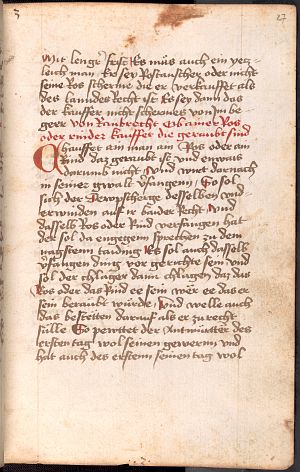 27
Mit lenger frist Es mus auch ein yetz
leich man Er sey Rostauscher oder nicht
seine Ros scherme die er verkauffet als
des lanndes Recht ist Es sey dann das
der kauffer nicht schermes von im be
ger von Raubrecht Ob ainer Ros
oder rinder kauffet die geraubt sind
Chauffet ain man ain Ros oder ain
Rind daz geraubt ist und enwais
darumb nicht Und wirt darnach
in seiner gwalt vfangenn So sol
sich der desselben und
erwinden auf ir baider Recht Und
dasselb Ros oder Rind verfangen hat
der sol da engegenn sprechen zu dem
nagstenn taiding Es sol auch dasselb
vfangen ding vor gerichte sein und
sol der chlager dann chlagen daz das
Ros oder das Rind ee sein wer ee das er
sein beraubt wurde Und welle auch
das bestetten darauf als er zu recht
sulle So der Antwurtter des
ersten tag wol seinen gewernn und
hat auch des erstenn seinen tag wol